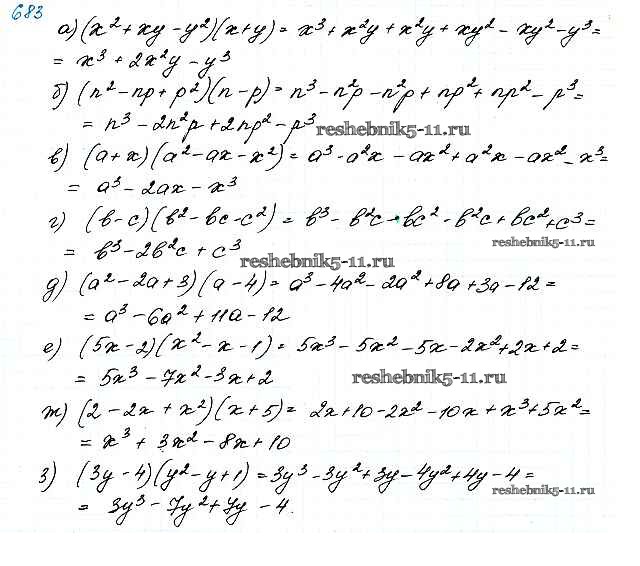 683
а) (x² + xy - y²)(x + y) = x³ + x²y + x²y + xy² - xy² - y³ =
= x³ + 2x²y - y³
б) (n² - np + p²)(n - p) = n³ - n²p - n²p + np² + np² - p³ =
= n³ - 2n²p + 2np² - p³
reshebnik5-11.ru
в) (a + x)(a² - ax - x²) = a³ - a²x - ax² + a²x - ax² - x³ =
= a³ - 2ax - x³
г) (b - c)(b² - bc - c²) = b³ - b²c - bc² - b²c + bc² + c³ =
reshebnik5-11.ru
= b³ - 2b²c + c³
reshebnik5-11.ru
д) (a² - 2a + 3)(a - 4) = a³ - 4a² - 2a² + 8a + 3a - 12 =
= a³ - 6a² + 11a - 12
е) (5x - 2)(x² - x - 1) = 5x³ - 5x² - 5x - 2x² + 2x + 2 =
= 5x³ - 7x² - 3x + 2
reshebnik5-11.ru
ж) (2 - 2x + x²)(x + 5) = 2x + 10 - 2x² - 10x + x³ + 5x² =
= x³ + 3x² - 8x + 10
з) (3y - 4)(y² - y + 1) = 3y³ - 3y² + 3y - 4y² + 4y - 4 =
reshebnik5-11.ru
= 3y³ - 7y² + 7y - 4.